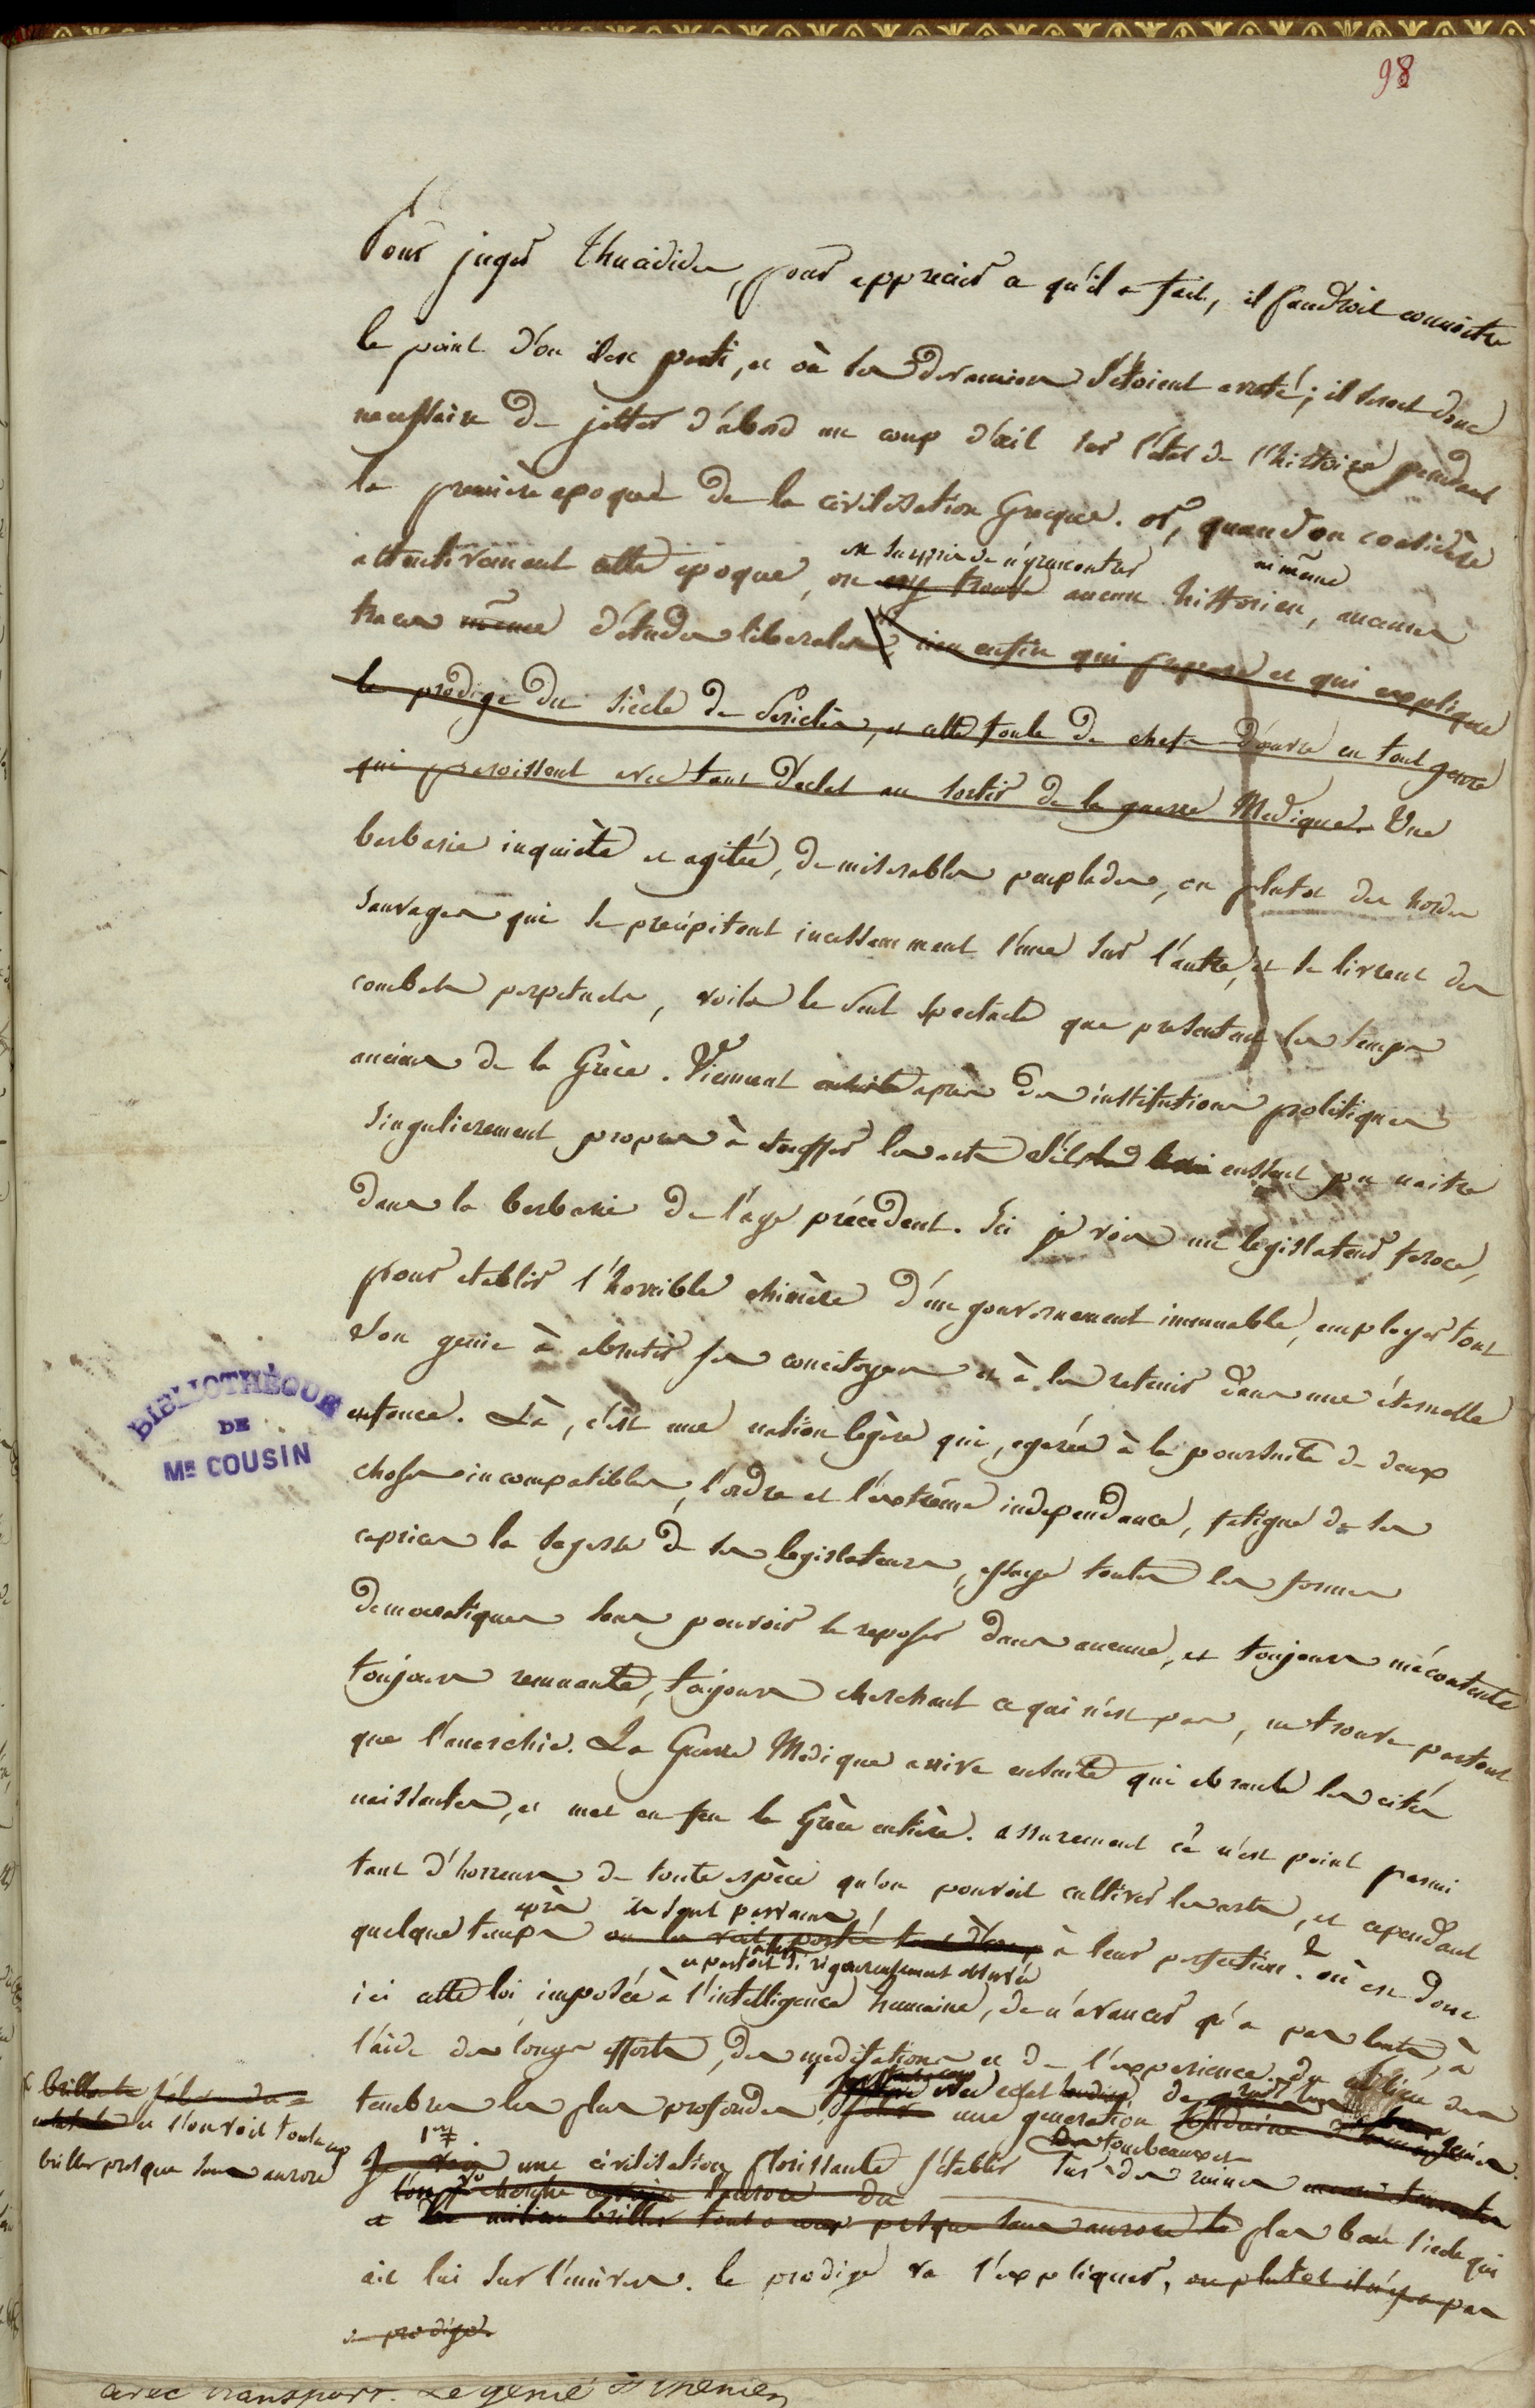 98
Pour juger Thucidides, pour apprecier ce qu'il a fait, il faudroit connoitre
le point d'ou il est parti, et où ses devanciers s'étoient arreté; il seroit donc
necessaire de jetter d'abord un coup d'œil sur l'état de l'histoire pendant
la premiere epoque de la civilisation Greque. or, quand on considère
est surpris de n'y rencontrer ni même
attentivement cette epoque, on n'y trouve aucun historien, aucunes
traces même d'études liberales, rien enfin qui prepare et qui explique
le prodige du siècle de Periclès, et cette foule de chefs d'œuvre en tout genre
qui paroissent avec tant d'eclat au sortir de la guerre Medique. Une
barbarie inquiète et agitée, de miserables peuplades, ou plutot des hordes
sauvages qui se precipitent incessamment l'une sur l'autre, et se livrent des
combats perpetuels, voila le seul spectacle que presentent les temps
anciens de la Grèce. Viennent ensuite après des institutions politiques
singulierement propres à etouffer les arts s'ils eussent pu naitre
dans la barbarie de l'age précedent. Ici je vois un legislateur feroce,
pour etablir l'horrible chimère d'un gouvernement immuable, employer tout
son genie à abrutir ses concitoyens et à les retenir dans une éternelle
enfance. Là, c'est une nation légère qui, egarée à la poursuite de deux
choses incompatibles, l'ordre et l'extrême independance, fatigue de ses
caprices la sagesse de ses legislateurs, essaye toutes les formes
democratiques sans pouvoir se reposer dans aucune, et toujours mécontente
toujours remuante, toujours cherchant ce qui n'est pas, ne trouve partout
que l'anarchie. La Guerre Medique arrive ensuite qui ebranle les cités
naissantes, et met en feu la Grèce entière. assurement ce n'est point parmi
tant d'horreurs de toute espèce qu'on pouvoit cultiver les arts, et cependant
après ils sont parvenus
quelque temps on les voit portés tout à coup à leur perfection. où est donc
et partout si rigoureusement observée
ici cette loi imposée à l'intelligence humaine, de n'avancer qu'a pas lents, à
l'aide des longs efforts, des meditations et de l'experience. du milieu des
tenebres les plus profondes, avec eclat une generation genies.
Je vois une civilisation florissante s'établir sur des ruines
des tombeaux et
l'on cherche l'aurore du
et au milieu briller tout a coup presque sans aurore le plus beau siecle qui
ait lui sur l'univers. le prodige va s'expliquer, ou plutot il n'y a pas
de prodige.
brillante
et l'on voit tout a coup
briller presque sans aurore
BIBLIOTHÈQUE
DE
MR COUSIN
avec transport. Le genie d'Athenes